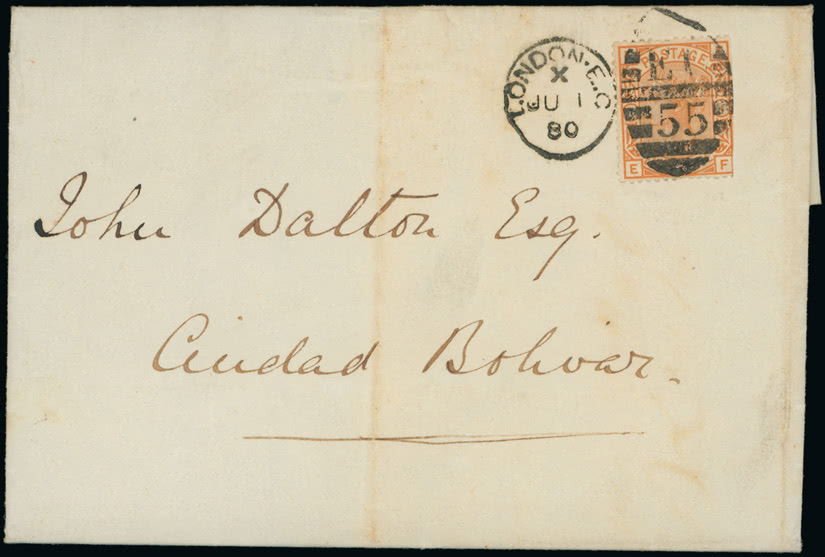 LONDON·E.C
X
JU 1
80
POSTAGE
E.C
55
E F
John Dalton Esq.
Ciudad Bolivar.